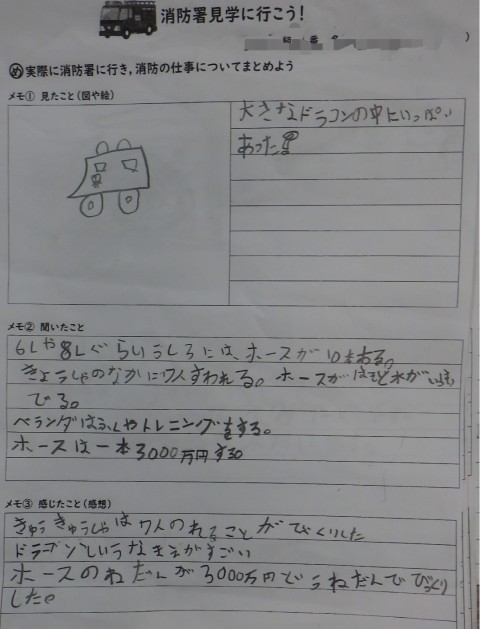 消防署見学に行こう！
番
）
め 実際に消防署に行き，消防の仕事についてまとめよう
メモ① 見たこと（図や絵）
大きなドラコンの中にいっぱい
あった
メモ② 聞いたこと
6Lや8Lぐらいうしろには、ホースが10本ある。
きょうしゃのなかに7人すわれる。ホースがほそと水が
でる。
ベランダは トレーニングをする。
ホースは一本3000万円する
メモ③ 感じたこと（感想）
きゅうきゅうしゃは7人のれることがびくりした
ドラゴンというなまえがすごい
ホースのねだんが3000万円でうねだんでびっくり
した。